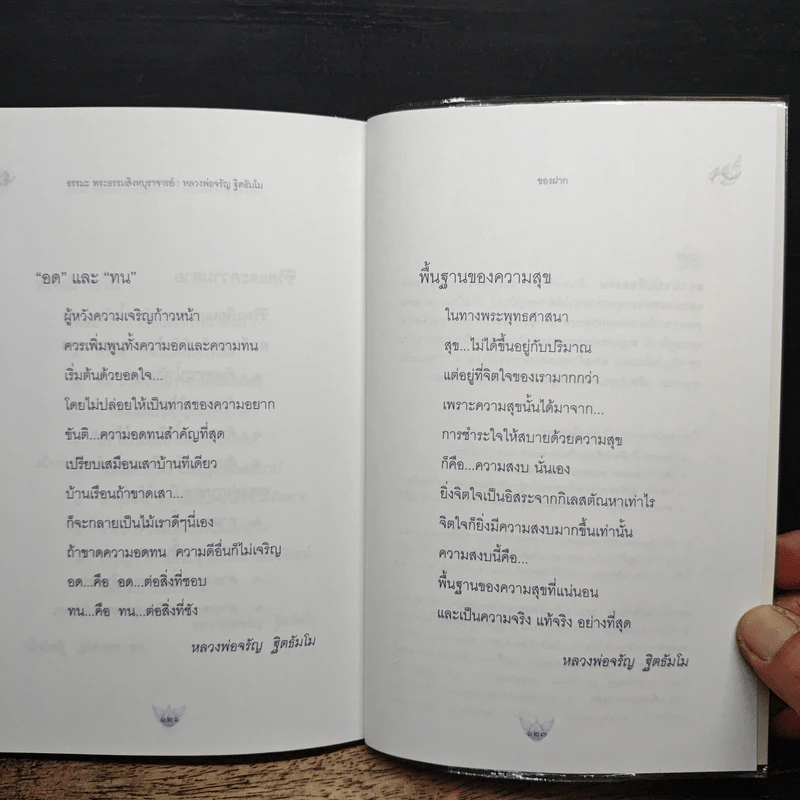 ธรรมะ พระธรรมสิงหบุราจารย์ : หลวงพ่อจรัญ ฐิตธัมโม
“อด” และ “ทน”
ผู้หวังความเจริญก้าวหน้า
ควรเพิ่มพูนทั้งความอดและความทน
เริ่มต้นด้วยอดใจ...
โดยไม่ปล่อยให้เป็นทาสของความอยาก
ขันติ...ความอดทนสำคัญที่สุด
เปรียบเสมือนเสาบ้านทีเดียว
บ้านเรือนถ้าขาดเสา...
ก็จะกลายเป็นไม้เราดีๆนี่เอง
ถ้าขาดความอดทน ความดีอื่นก็ไม่เจริญ
อด...คือ อด...ต่อสิ่งที่ชอบ
ทน...คือ ทน...ต่อสิ่งที่ชัง
หลวงพ่อจรัญ ฐิตธัมโม
ของฝาก
พื้นฐานของความสุข
ในทางพระพุทธศาสนา
สุข...ไม่ได้ขึ้นอยู่กับปริมาณ
แต่อยู่ที่จิตใจของเรามากกว่า
เพราะความสุขนั้นได้มาจาก...
การชำระใจให้สบายด้วยความสุข
ก็คือ...ความสงบ นั่นเอง
ยิ่งจิตใจเป็นอิสระจากกิเลสตัณหาเท่าไร
จิตใจก็ยิ่งมีความสงบมากขึ้นเท่านั้น
ความสงบนี้คือ...
พื้นฐานของความสุขที่แน่นอน
และเป็นความจริง แท้จริง อย่างที่สุด
หลวงพ่อจรัญ ฐิตธัมโม